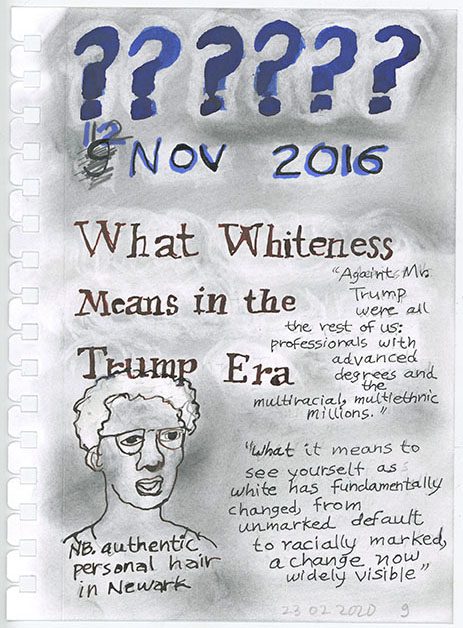 ??????
12
9 NOV 2016
What Whiteness
Means in the
Trump Era
"Againt Mr.
Trump
were all
the rest of us:
professionals with
advanced
degrees and
the
multiracial, multiethnic
millions."
"What it means to
see yourself as
white has fundamentally
changed, from
unmarked default
to racially marked,
a change now
widely visible"
NB. authentic
personal hair
in Newark
23 02 2020 9